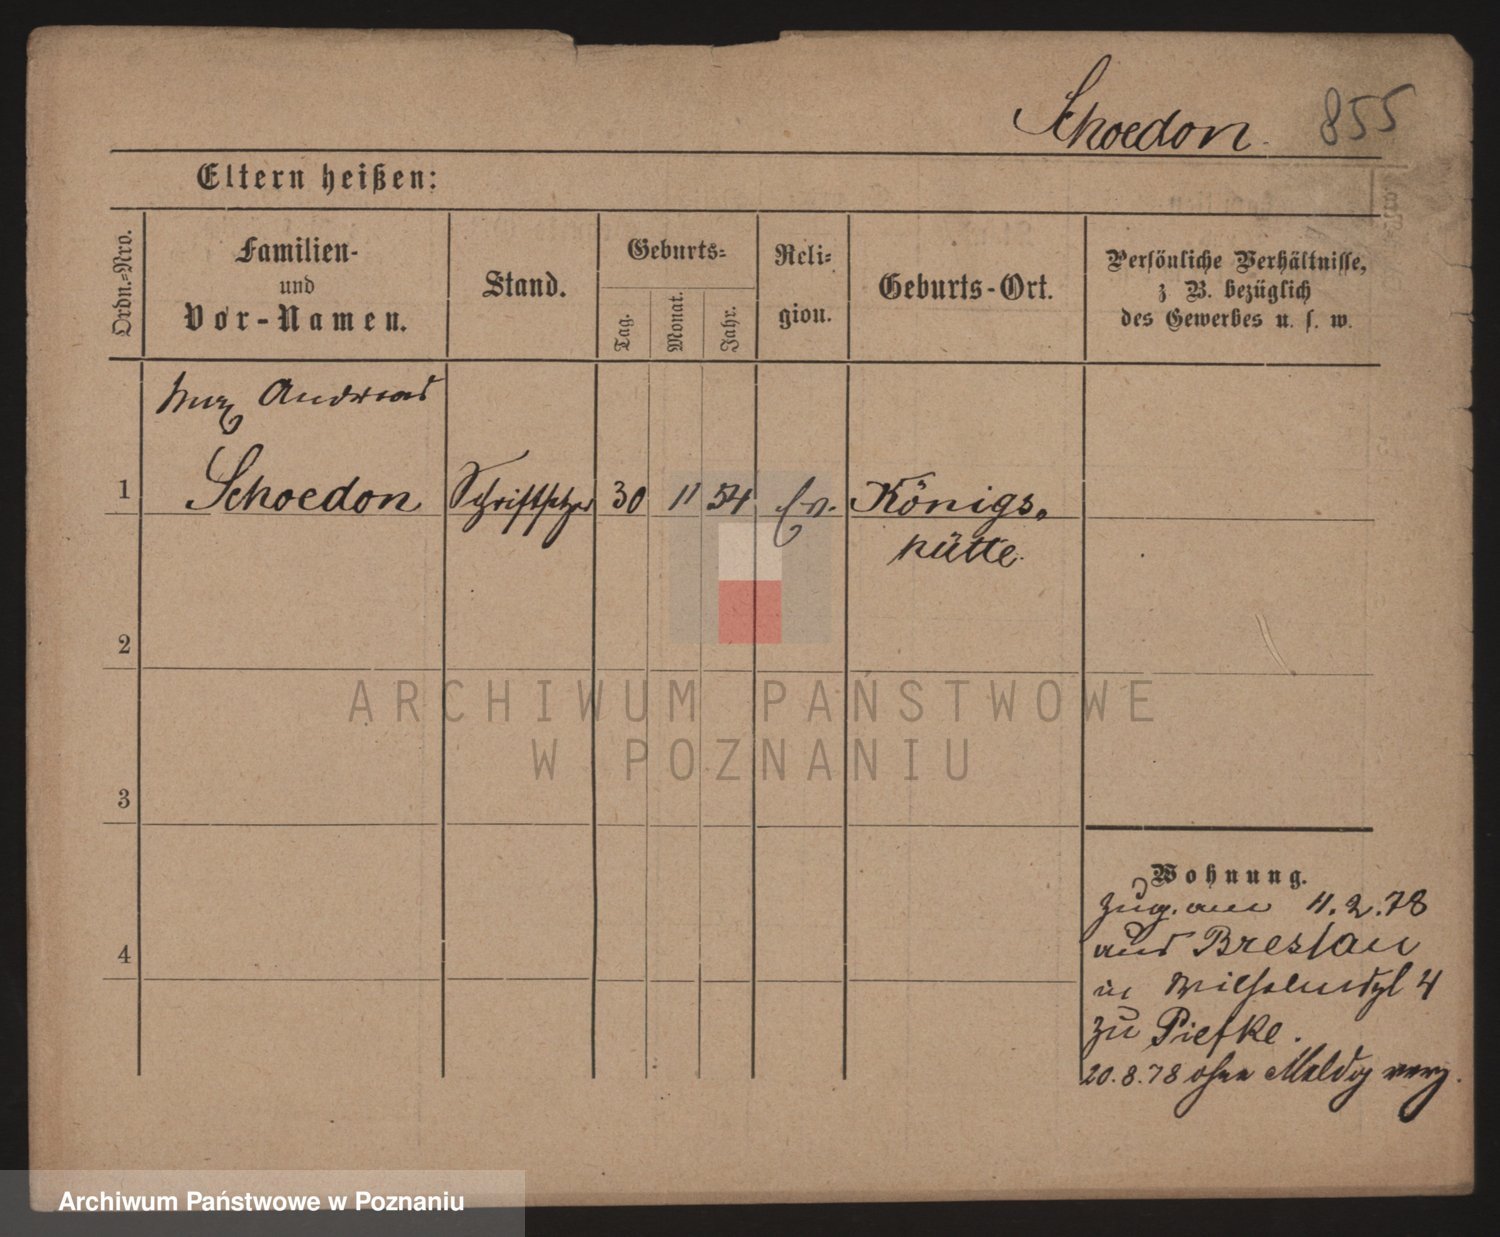 Schoedon. 855
Eltern heißen:
Ordn.-Nro.
Familien-
und
Vor-Namen.
Stand.
Geburts-
Tag.
Monat.
Jahr.
Reli-
gion.
Geburts-Ort.
Persönliche Verhältnisse,
z B. bezüglich
des Gewerbes u. s. w.
Max Andreas
1 Schoedon Schriftsetzer 30 11 54 Ev. Königs-
hütte.
2
3
4
Wohnung.
Zug. am 11.2.78
aus Breslau
in Wilhelmspl 4
zu Piefke.
20.8.78 ohne Meldg verz.
ARCHIWUM PAŃSTWOWE
W POZNANIU
Archiwum Państwowe w Poznaniu